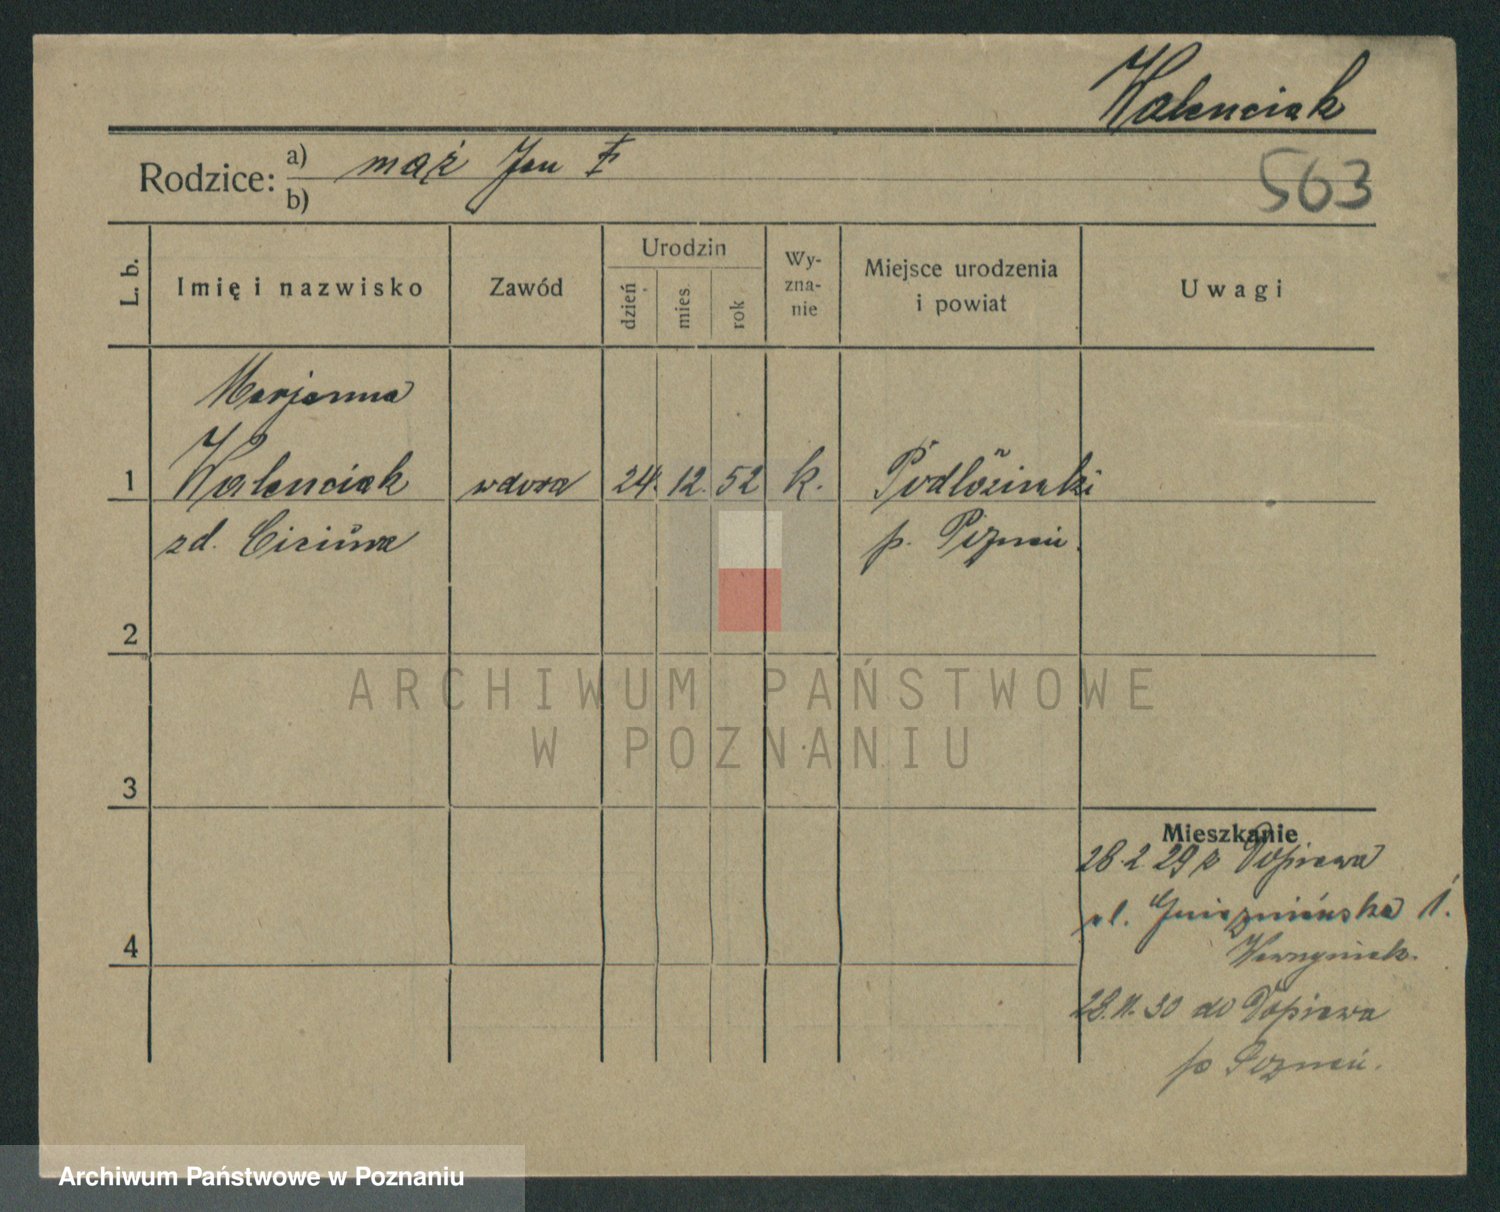 Walenciak
Rodzice: a) mąż Jan †
b)
563
L. b.
Imię i nazwisko
Zawód
Urodzin
dzień
mies.
rok
Wy-
zna-
nie
Miejsce urodzenia
i powiat
Uwagi
Marjanna
1 Walenciak wdowa 24. 12. 52 k.
zd. p. Poznań.
2
ARCHIWUM PAŃSTWOWE
W POZNANIU
3
Mieszkanie
28.2.29 z Dopiewa
ul. Gnieźnieńska 1.
Wawrzyniak.
4
28.11.30 do Dopiewa
p. Poznań.
Archiwum Państwowe w Poznaniu